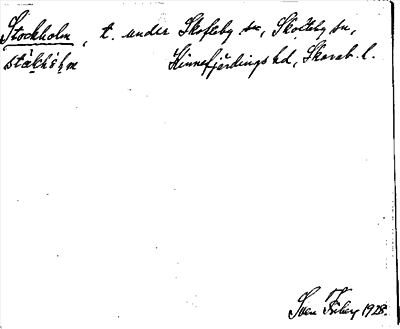 Stockholm, t. under Skofteby sn, Skalleby sn,
ståkhòlm Kinnefjärdings hd, Skarab. l.
Sven Friberg 1928.